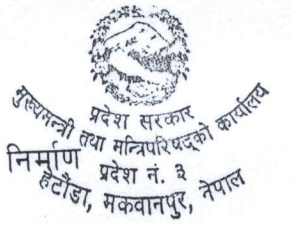 प्रदेश सरकार
मुख्यमन्त्री तथा मन्त्रिपरिषद्को कार्यालय
निर्माण
प्रदेश नं. ३
हेटौंडा, मकवानपुर, नेपाल